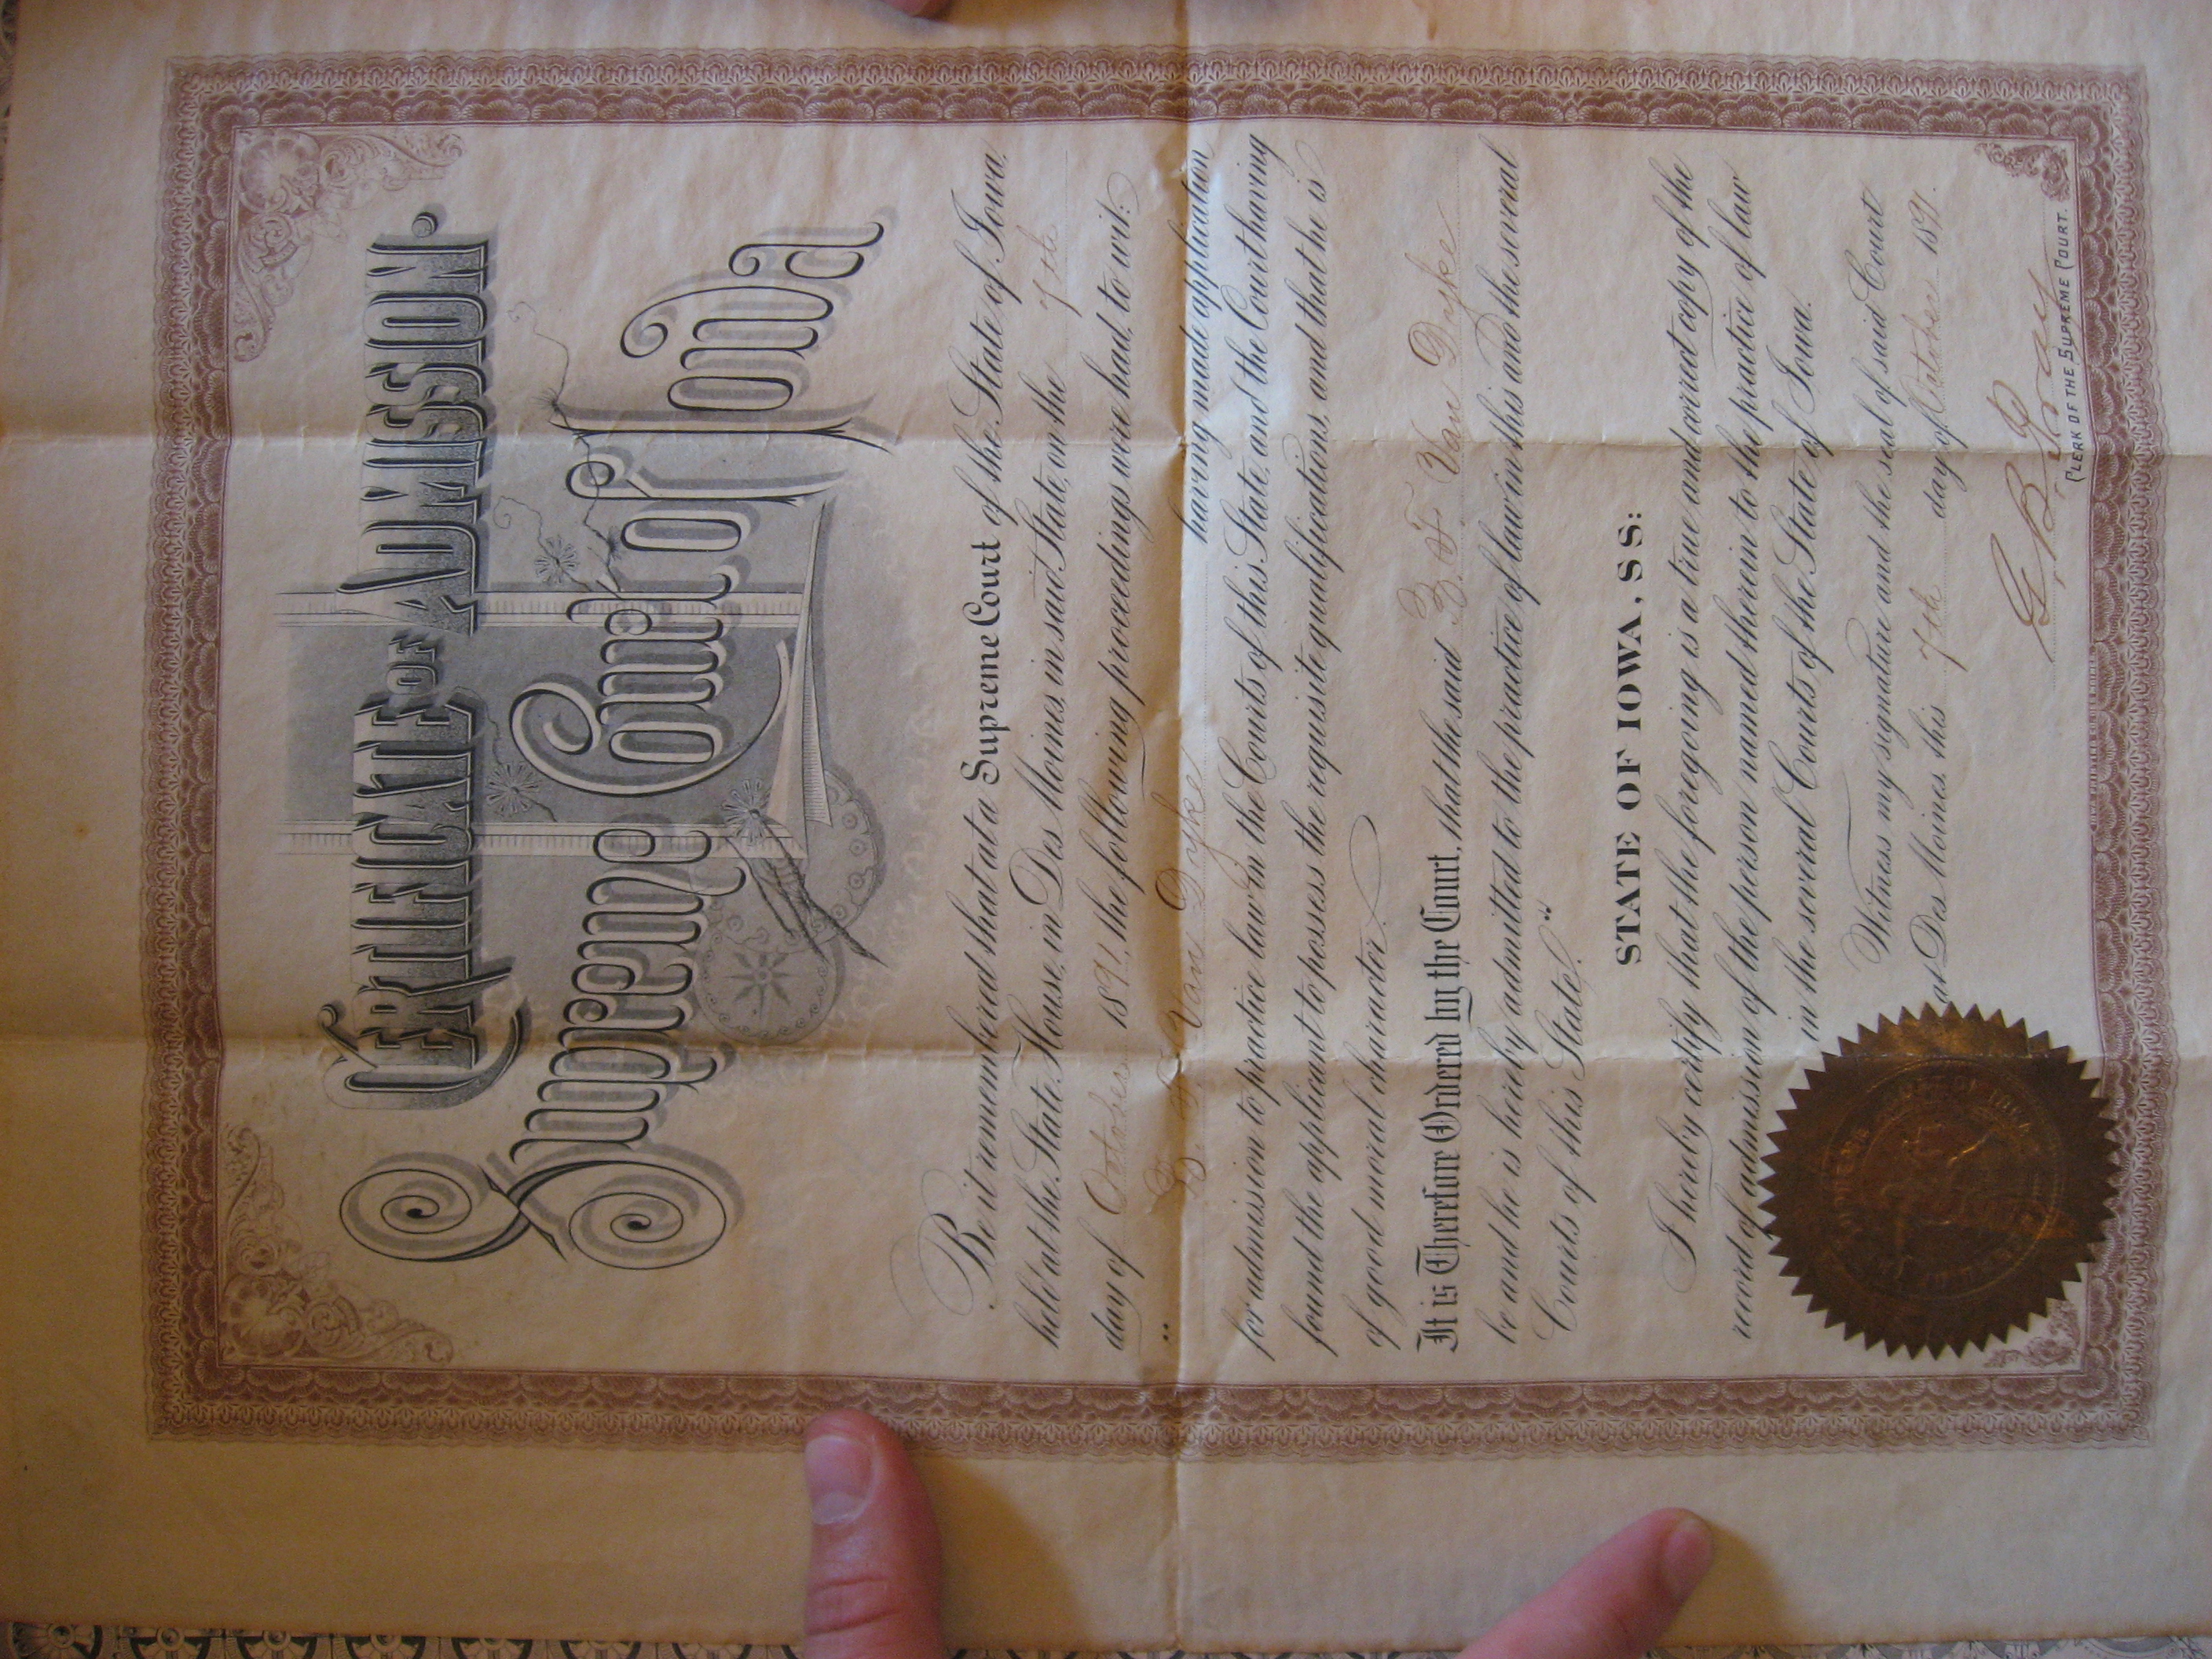 CERTIFICATE OF ADMISSION.
Supreme Court of Iowa
Be it remembered that at a Supreme Court of the State of Iowa,
held at the State House, in Des Moines, in said State, on the 7th
day of October 1891, the following proceedings were had, to wit:
" B. F. Van Dyke having made application
for admission to practice law in the Courts of this State, and the Court having
found the applicant to possess the requisite qualifications, and that he is
of good moral character.
It is Therefore Ordered by the Court, that the said B. F. Van Dyke
be and he is hereby admitted to the practice of law in this and the several
Courts of this State."
STATE OF IOWA, SS:
I hereby certify that the foregoing is a true and correct copy of the
record of admission of the person named therein to the practice of law
in the several Courts of the State of Iowa.
Witness my signature and the seal of said Court
at Des Moines, this 7th day of October 1891.
G. B. Pray
CLERK OF THE SUPREME COURT.